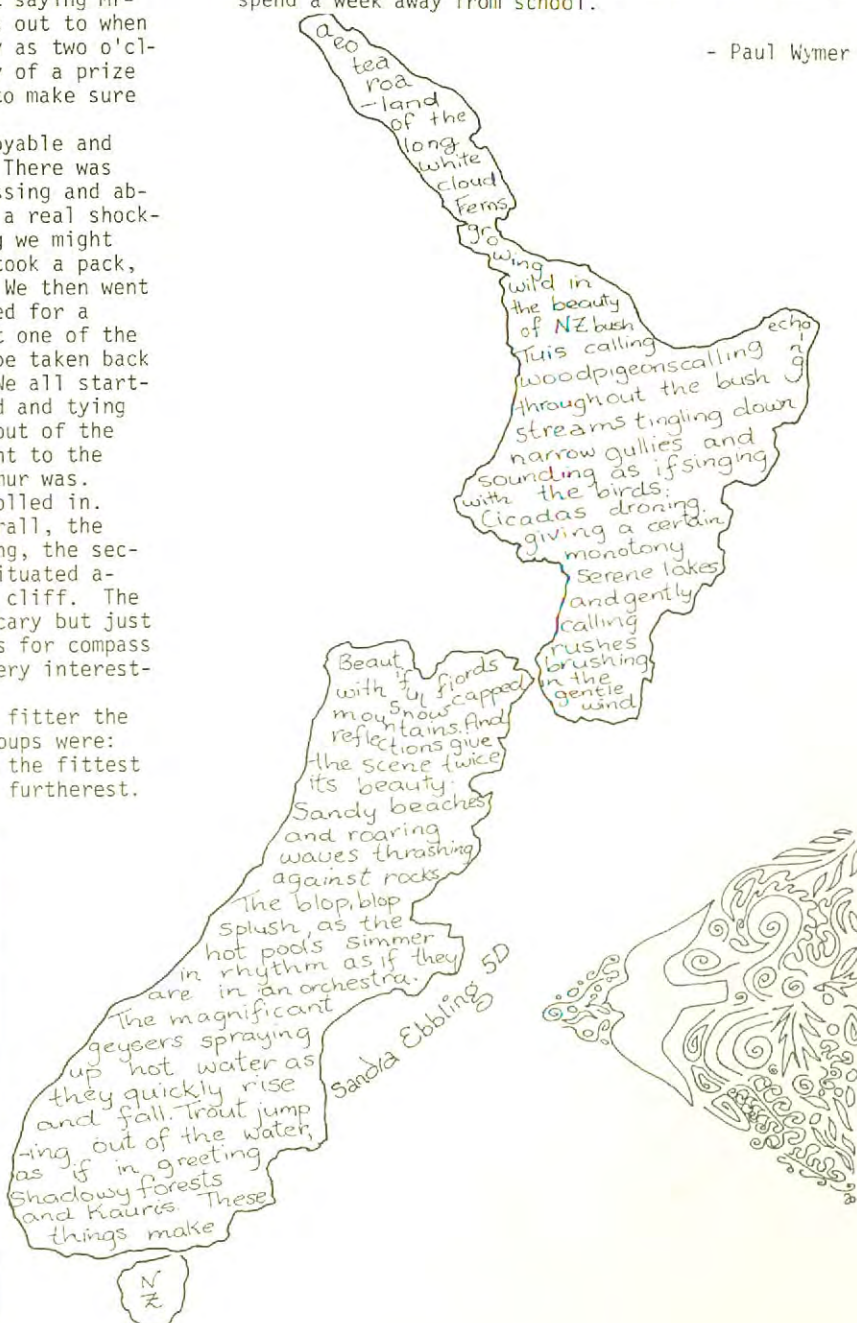 t saying Mr-
out to when
y as two o'cl-
y of a prize
to make sure
oyable and
There was
ssing and ab-
a real shock-
g we might
took a pack,
We then went
ed for a
t one of the
be taken back
We all start-
d and tying
out of the
nt to the
hur was.
olled in.
rall, the
ng, the sec-
ituated a-
cliff. The
cary but just
s for compass
ery interest-
fitter the
oups were:
the fittest
furtherest.
spend a week away from school.
- Paul Wymer
aeo
tea
roa
-land
of the
long
white
cloud
Ferns
gro
wing
wild in
the beauty
of NZ bush
Tuis calling
woodpigeons calling echoing
throughout the bush
streams tingling down
narrow gullies and
sounding as if singing
with the birds;
Cicadas droning.
giving a certain
monotony
Serene lakes
and gently
calling
rushes
brushing
in the
gentle
wind
Beautiful fiords
with snow capped
mountains. And
reflections give
the scene twice
its beauty.
Sandy beaches
and roaring
waves thrashing
against rocks
The blop, blop
splush, as the
hot pools simmer
in rhythm as if they
are in an orchestra.
The magnificant
geysers spraying
up hot water as
they quickly rise
and fall. Trout jump
-ing out of the water,
as if in greeting
Shadowy forests
and Kauris. These
things make
NZ
Sandra Ebbling 5D